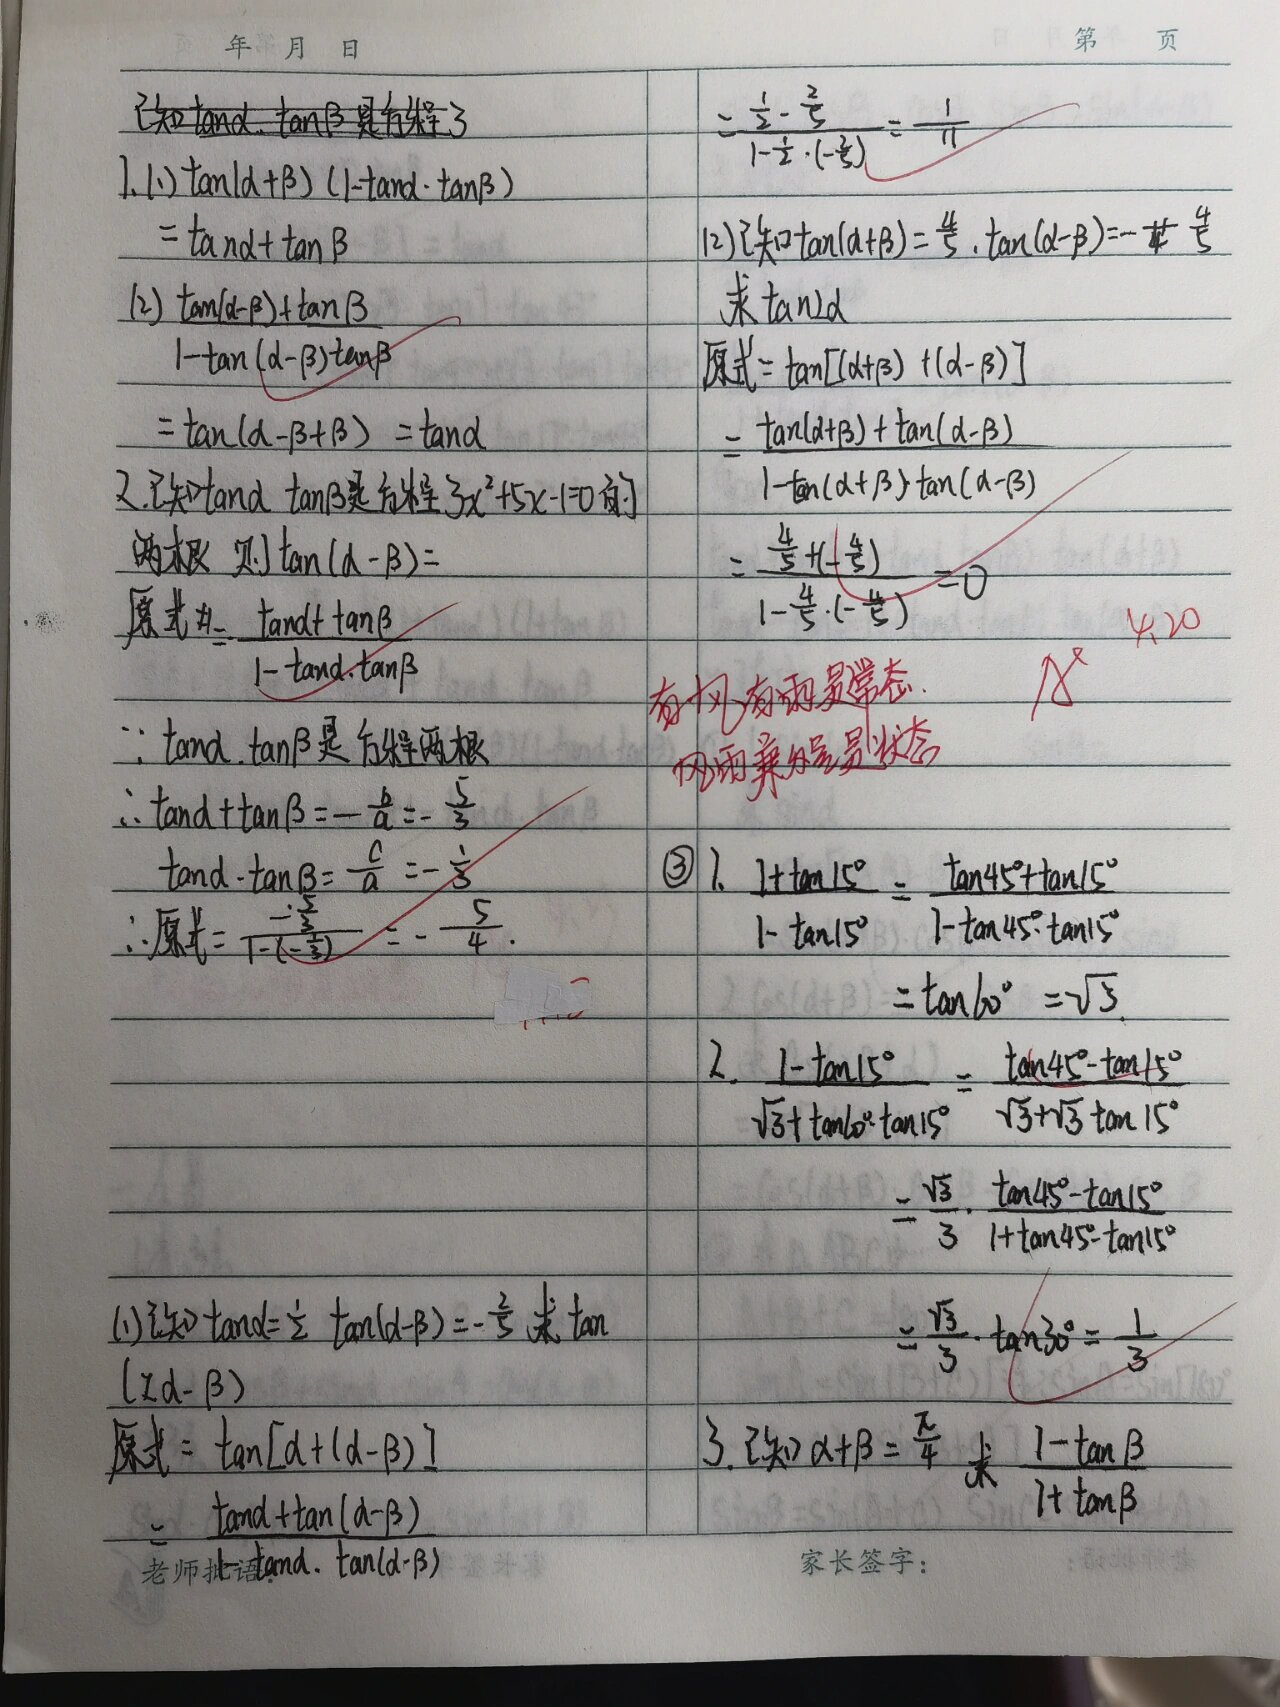 年 月 日
第 页
已知tanα.tanβ是方程3
1.(1)tan(α+β)(1-tanα·tanβ)
=tanα+tanβ
(2) tan(α-β)+tanβ
1-tan(α-β)tanβ
=tan(α-β+β) =tanα
2.已知tanα tanβ是方程3x²+5x-1=0的
两根 则tan(α-β)=
原式= tanα+tanβ
1-tanα.tanβ
∵tanα.tanβ是方程两根
∴tanα+tanβ=-b/a=-5/3
tanα·tanβ=c/a=-1/3
∴原式= -5/3 / 1-(-1/3) =-5/4.
(1)已知tanα=1/2 tan(α-β)=-2/5 求tan
(2α-β)
原式=tan[α+(α-β)]
= tanα+tan(α-β)
1-tanα.tan(α-β)
老师批语:
= 1/2-2/5 / 1-1/2·(-2/5) = 1/11
(2)已知tan(α+β)=4/5.tan(α-β)=-4/5
求tan2α
原式=tan[(α+β)+(α-β)]
= tan(α+β)+tan(α-β)
1-tan(α+β)tan(α-β)
= 4/5+(-4/5) / 1-4/5·(-4/5) =0
4.20
A⁺
有风有雨是常态.
风雨兼程是状态
③1. 1+tan15° / 1-tan15° = tan45°+tan15° / 1-tan45°·tan15°
=tan60° =√3.
2. 1-tan15° / √3+tan60°·tan15° = tan45°-tan15° / √3+√3tan15°
= √3/3 · tan45°-tan15° / 1+tan45°-tan15°
= √3/3·tan30°=1/3
3.已知α+β=π/4 求 1-tanβ / 1+tanβ
家长签字: